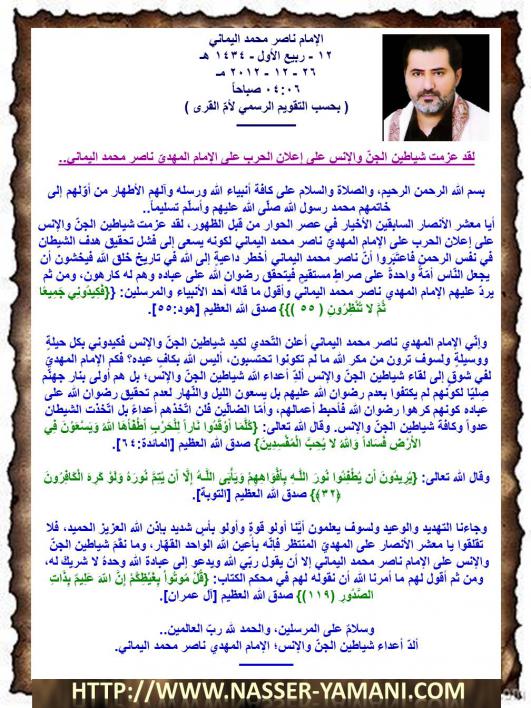 الإمام ناصر محمد اليماني
١٢ - ربيع الأول - ١٤٣٤ هـ
٢٦ - ١٢ - ٢٠١٢ مـ
٠٤:٠٦ صباحاً
( بحسب التقويم الرسمي لأمّ القرى )
لقد عزمت شياطين الجنّ والإنس على إعلان الحرب على الإمام المهديّ ناصر محمد اليماني..
بسم الله الرحمن الرحيم، والصلاة والسلام على كافة أنبياء الله ورسله وآلهم الأطهار من أوّلهم إلى
خاتمهم محمد رسول الله صلّى الله عليهم وأسلّم تسليماً..
أيا معشر الأنصار السابقين الأخيار في عصر الحوار من قبل الظهور، لقد عزمت شياطين الجنّ والإنس
على إعلان الحرب على الإمام المهديّ ناصر محمد اليماني لكونه يسعى إلى فشل تحقيق هدف الشيطان
في نفس الرحمن فاعتبروا أنّ ناصر محمد اليماني أخطر داعيةٍ إلى الله في تاريخ خلق الله فيخشون أن
يجعل النّاس أمّةً واحدةً على صراطٍ مستقيمٍ فيتحقق رضوان الله على عباده وهم له كارهون، ومن ثم
يردّ عليهم الإمام المهدي ناصر محمد اليماني وأقول ما قاله أحد الأنبياء والمرسلين: {{فَكِيدُونِي جَمِيعًا
ثُمَّ لَا تُنْظِرُونِ ( ٥٥ )}} صدق الله العظيم [هود:٥٥].
وإنّي الإمام المهدي ناصر محمد اليماني أعلن التّحدي لكيد شياطين الجنّ والإنس فكيدوني بكل حيلةٍ
ووسيلةٍ ولسوف ترون من مكر الله ما لم تكونوا تحتسبون، أليس الله بكافٍ عبده؟ فكم الإمام المهديّ
لفي شوقٍ إلى لقاء شياطين الجنّ والإنس ألدّ أعداء الله شياطين الجنّ والإنس؛ بل هم أولى بنار جهنّم
صليّا لكونهم لم يكتفوا بعدم رضوان الله عليهم بل يسعون الليل والنّهار لعدم تحقيق رضوان الله على
عباده كونهم كرهوا رضوان الله فأحبط أعمالهم، وأمّا الضالّين فلن اتّخذهم أعداءً بل اتّخذت الشيطان
عدواً وكافة شياطين الجنّ والإنس. وقال الله تعالى: {كُلَّمَا أَوْقَدُوا نَاراً لِلْحَرْبِ أَطْفَأَهَا اللَّهُ وَيَسْعَوْنَ فِي
الأَرْضِ فَسَاداً وَاللَّهُ لا يُحِبُّ الْمُفْسِدِينَ} صدق الله العظيم [المائدة:٦٤].
وقال الله تعالى: {يُرِيدُونَ أَن يُطْفِئُوا نُورَ اللَّهِ بِأَفْوَاهِهِمْ وَيَأْبَى اللَّهُ إِلَّا أَن يُتِمَّ نُورَهُ وَلَوْ كَرِهَ الْكَافِرُونَ
﴿٣٢﴾} صدق الله العظيم [التوبة].
وجاءنا التهديد والوعيد ولسوف يعلمون أيّنا أولو قوةٍ وأولو بأسٍ شديد بإذن الله العزيز الحميد، فلا
تقلقوا يا معشر الأنصار على المهديّ المنتظر فإنّه بأعين الله الواحد القهّار، وما نقمَ شياطين الجنّ
والإنس على الإمام ناصر محمد اليماني إلا أن يقول ربّي الله ويدعو إلى عبادة الله وحدهُ لا شريك له،
ومن ثم أقول لهم ما أمرنا الله أن نقوله لهم في محكم الكتاب: {قُلْ مُوتُواْ بِغَيْظِكُمْ إِنَّ اللّهَ عَلِيمٌ بِذَاتِ
الصُّدُورِ (١١٩)} صدق الله العظيم [آل عمران].
وسلامٌ على المرسلين، والحمد لله ربّ العالمين..
ألدّ أعداء شياطين الجنّ والإنس؛ الإمام المهدي ناصر محمد اليماني.
HTTP://WWW.NASSER-YAMANI.COM